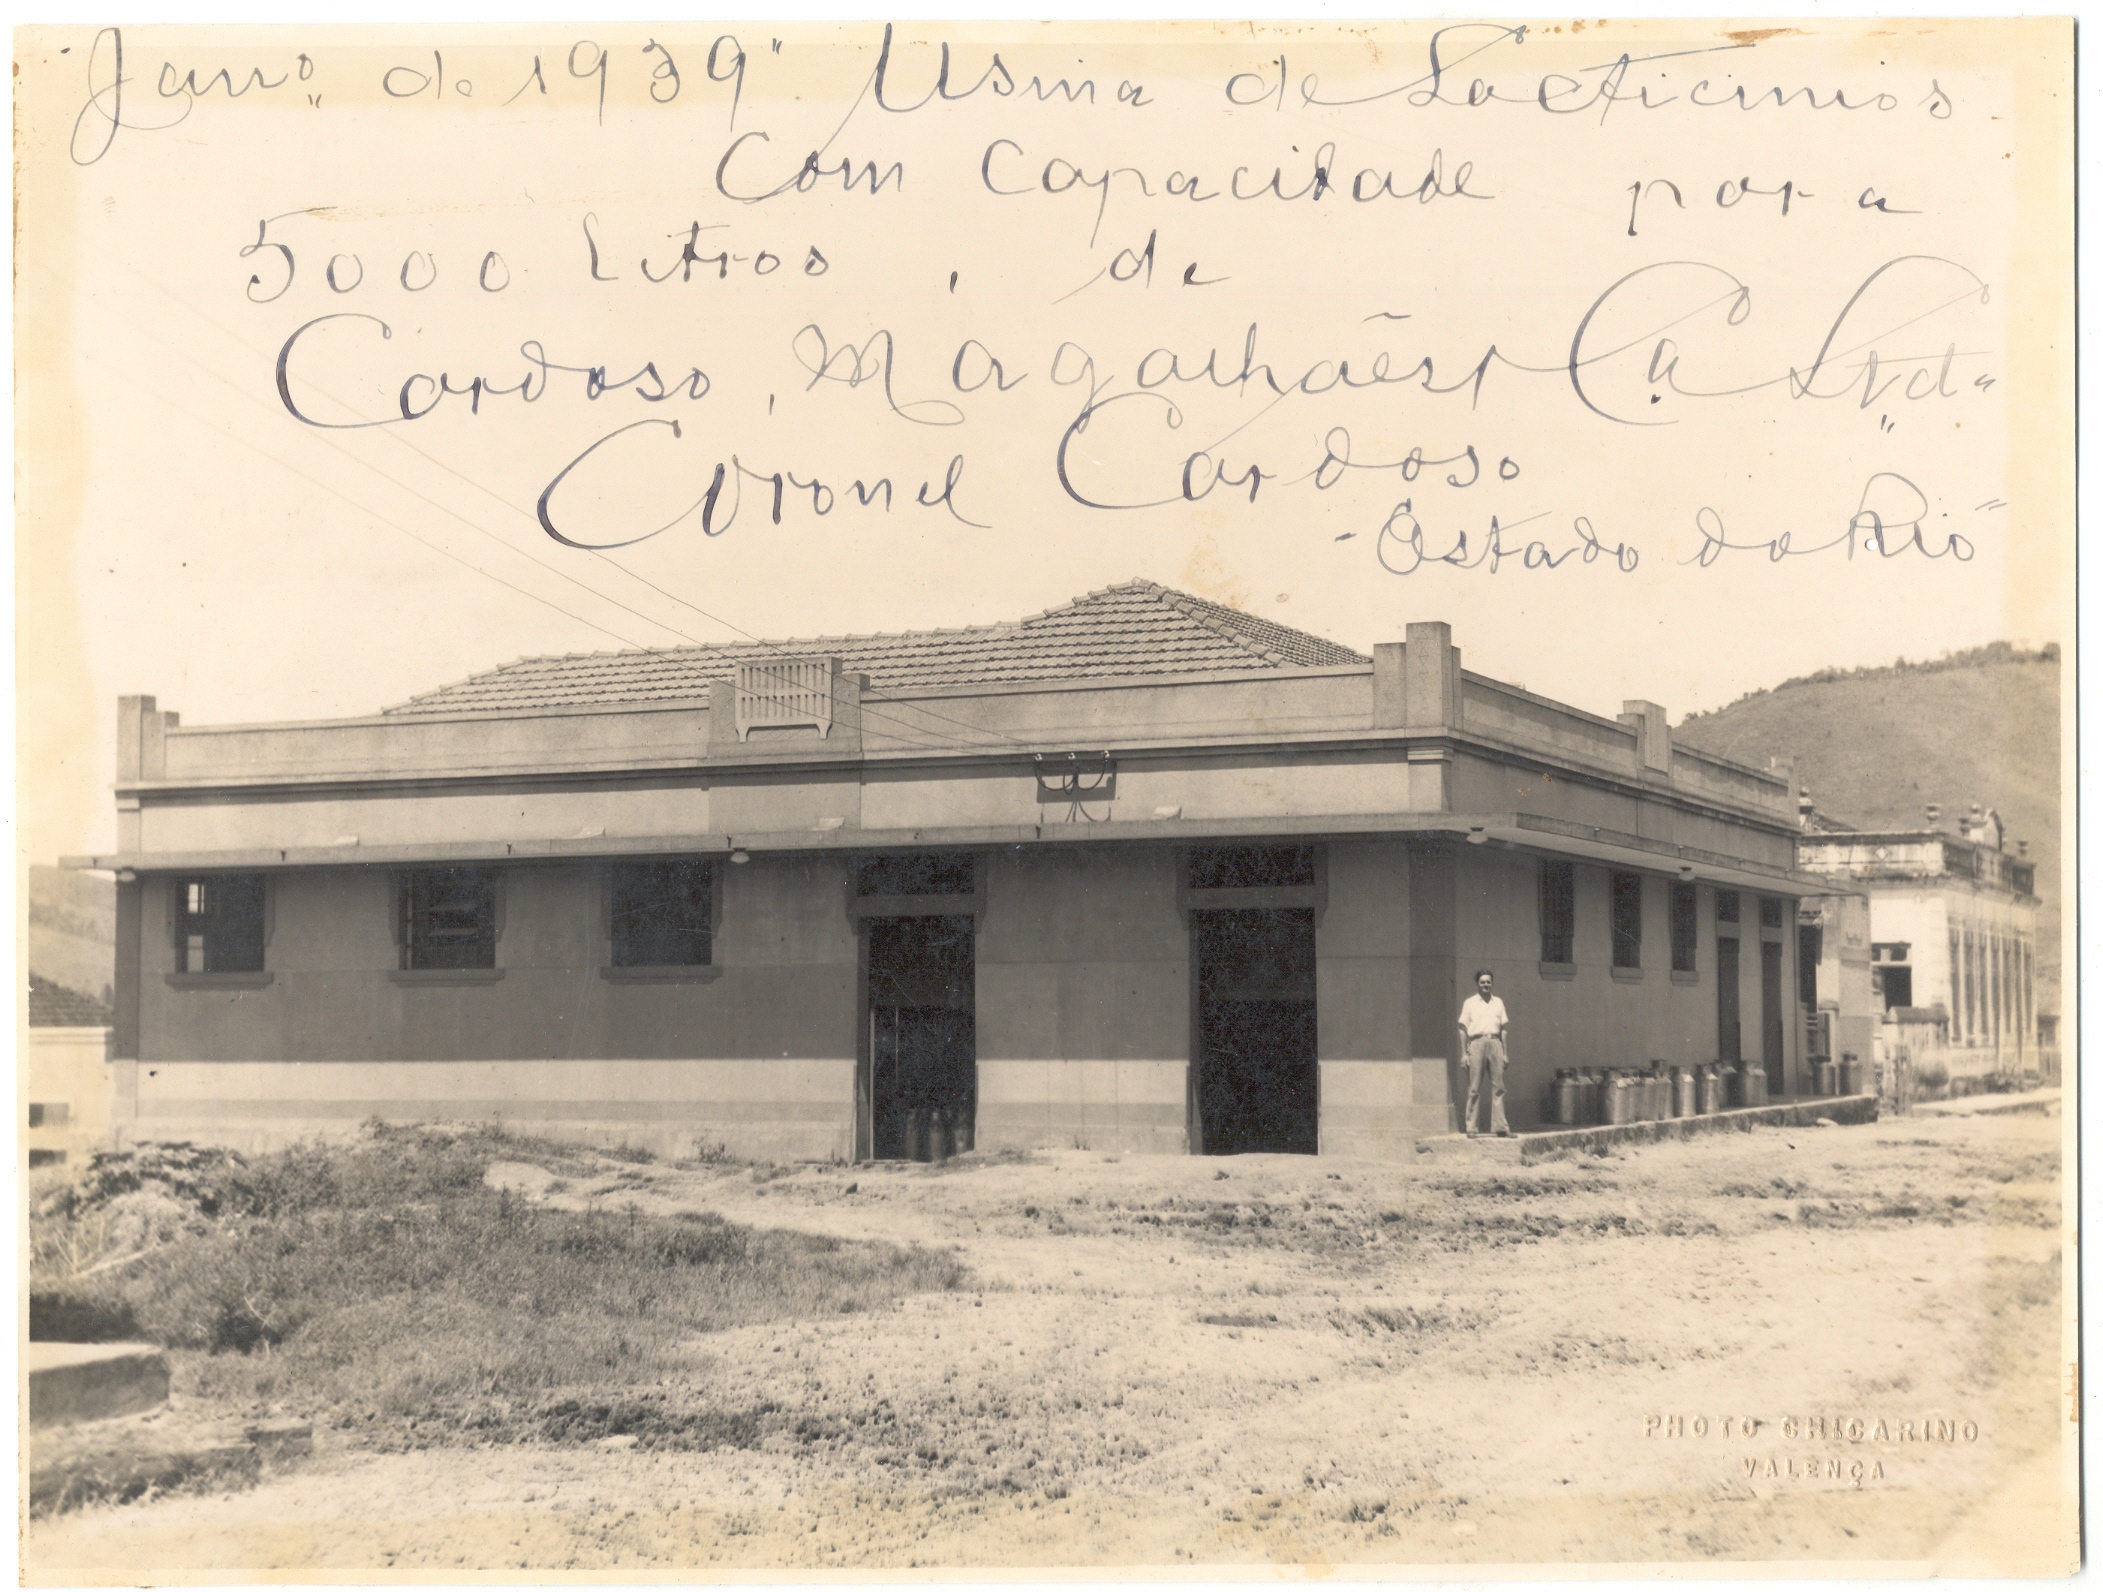 "Janro," de 1939" Usina de Lacticinios
Com Capacidade para
5000 Litros, de
Cardoso, Magalhães & Cia Ltda
Coronel Cardoso
- Estado do Rio "
PHOTO CHICARINO
VALENÇA